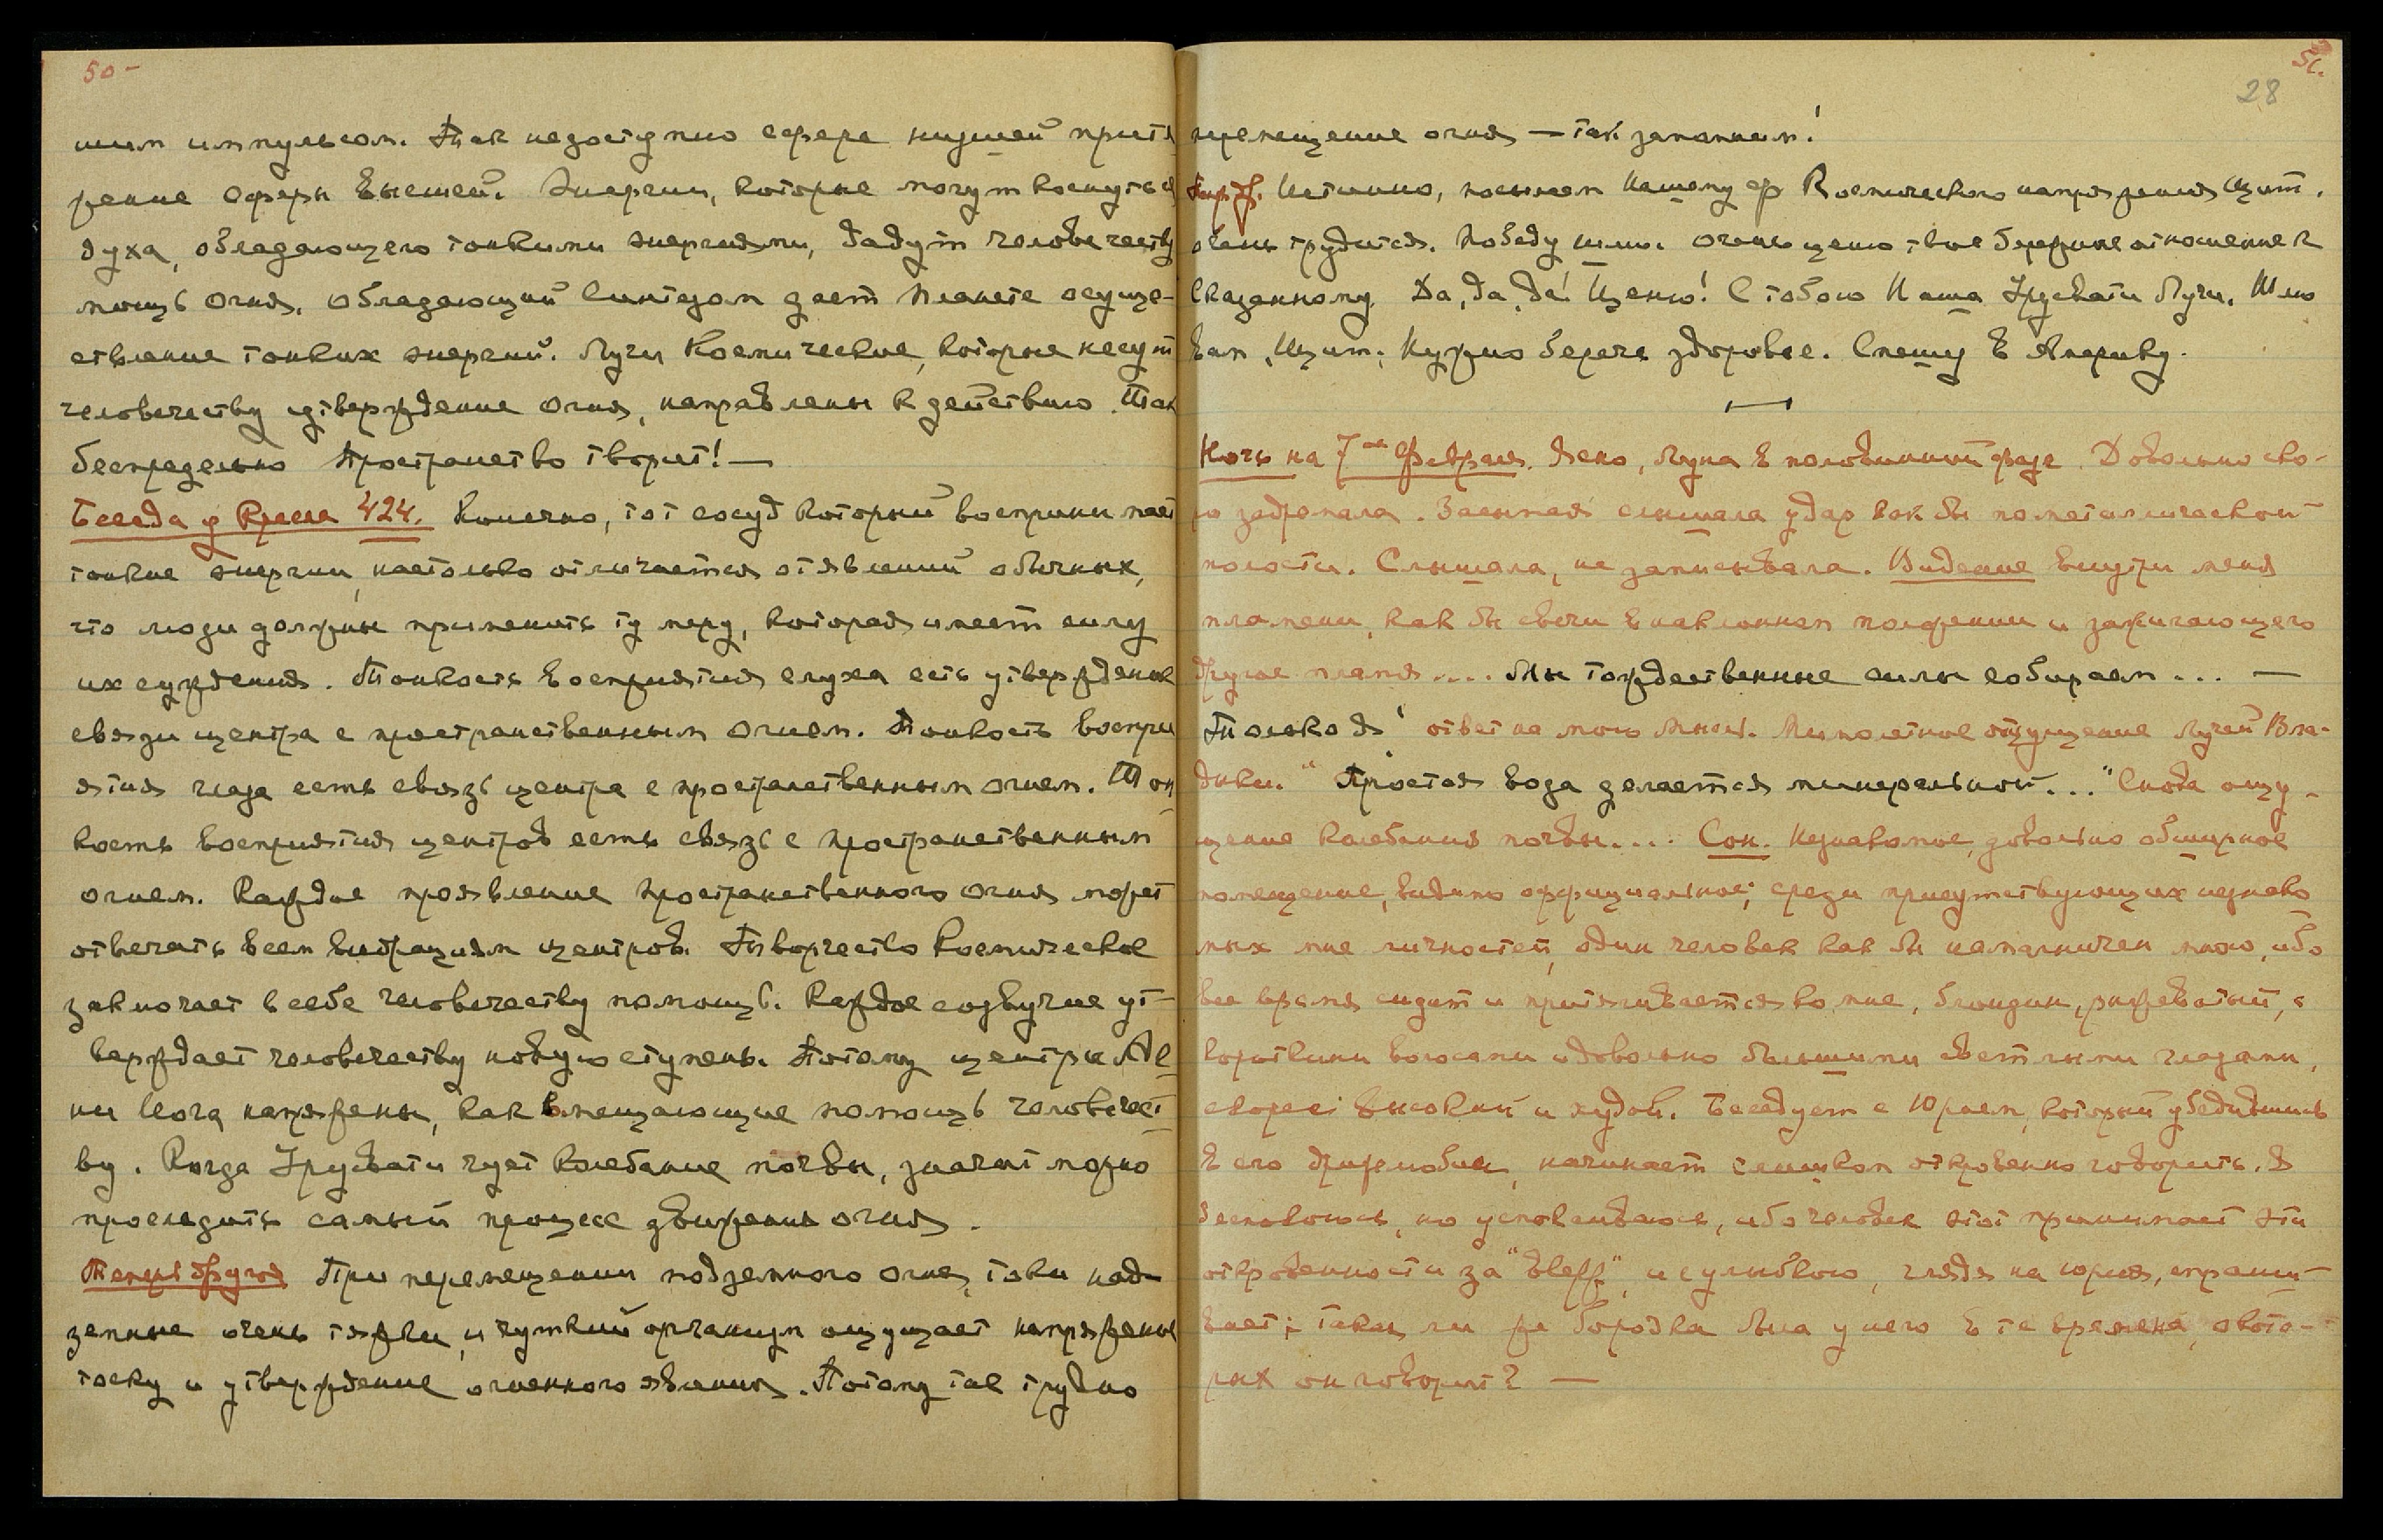 50 –
шим импульсом. Так недоступно сфере низшей притя
жение сферы Высшей. Энергии, которые могут коснуться
духа, обладающего тонкими энергиями, дадут человечеству
мощь огня. Обладающий синтезом дает планете осуще-
ствление тонких энергий. Лучи Космические, которые несут
человечеству утверждение огня, направлены к действию. Так
беспредельно Пространство творит! —
Беседа у Кресла 424. Конечно, тот сосуд который воспринимает
тонкие энергии, настолько отличается от явлений обычных,
что люди должны применить ту меру, которая имеет силу
их суждения. Тонкость восприятия слуха есть утверждение
связи центра с пространственным огнем. Тонкость воспри
ятия глаза есть связь центра с пространственным огнем. Тон
кость восприятия центров есть связь с пространственным
огнем. Каждое проявление пространственного огня может
отвечать всем вибрациям центров. Творчество Космическое
заключает в себе человечеству помощь. Каждое созвучие ут-
верждает человечеству новую ступень. Потому центры Аг-
ни Йога напряжены, как вмещающие помощь человечест-
ву. Когда Урусвати чует колебание почвы, значит можно
проследить самый процесс движения огня.
Теперь другое При перемещении подземного огня, токи над-
земные очень тяжки, и чуткий организм ощущает напряжение
тоску и утверждение огненного явления. Потому так трудно
51.
28
перемещение огня — так запомним!
Истинно, посылаем Нашему ф Космического напряжения Щит.
очень трудится. Победу шлю. Очень ценю твое бережное отношение к
сказанному. Да, да, да! Ценю! С тобою Наша Урусвати Лучи. Шлю
вам, Щит. Нужно беречь здоровье. Спешу в Америку.
Ночь на 7ое Февраля. Ясно, Луна в половинной фазе. Довольно ско-
ро задремала. Засыпая слышала удар как бы по металлической
полости. Слышала, не записывала. Видение внутри меня
пламени, как бы свечи в наклонном положении и зажигающего
другое пламя.... Мы тождественные силы собираем... —
Только Я! ответ на мою мысль. Мимолетное ощущение Лучей Вла-
дыки. "Простая вода делается минеральной..." Снова ощу-
щение колебания почвы.... Сон. Незнакомое, довольно обширное
помещение, видимо оффициальное; среди присутствующих незнако
мых мне личностей, один человек как бы намагничен мною, ибо
все время сидит и притягивается ко мне, блондин, рыжеватый, с
короткими волосами и довольно большими светлыми глазами,
скорее высокий и худой. Беседует с Юрием, который убедившись
в его дружелюбии, начинает слишком откровенно говорить. Я
беспокоюсь, но успокаиваюсь, ибо человек этот принимает эти
откровенности за "bleff", и с улыбкою, глядя на Юрия, спраши-
вает; такая ли же бородка была у него в те времена, о кото-
рых он говорит? —